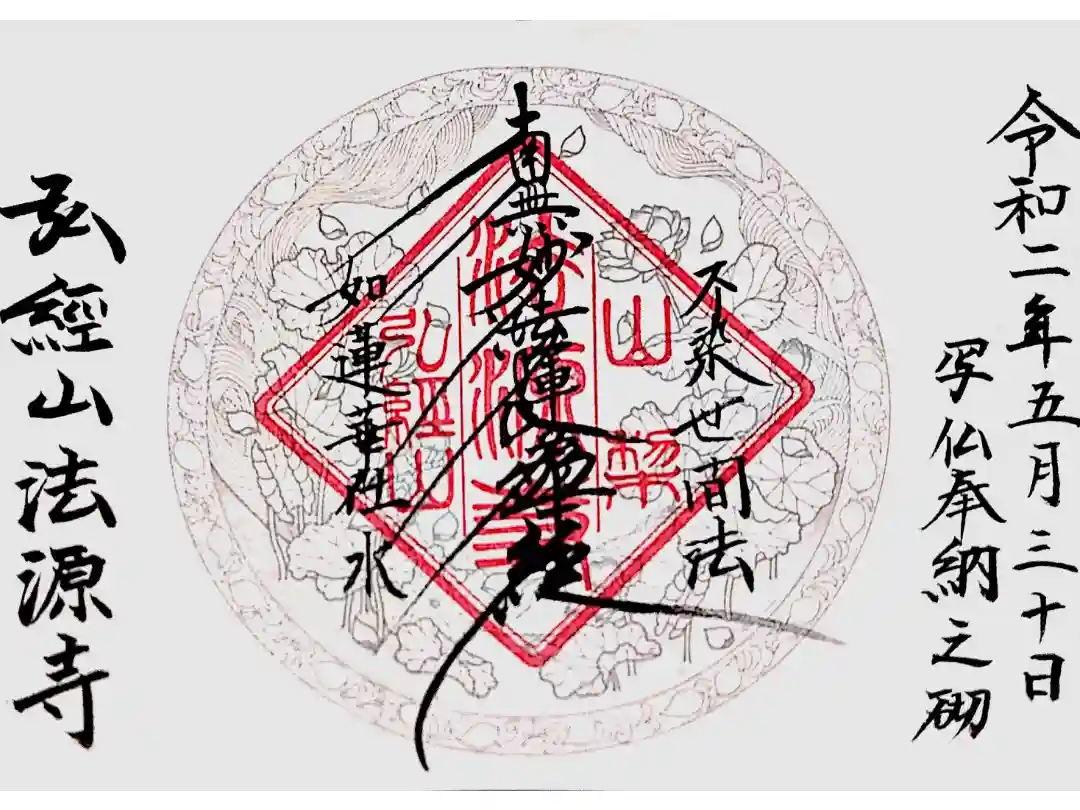 令和二年五月三十日
写仏奉納之砌
不染世間法
南無妙法蓮華経
如蓮華在水
弘經山法源寺
山梨
法源寺
弘経山